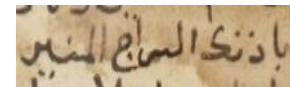 باذنك السراج المنير